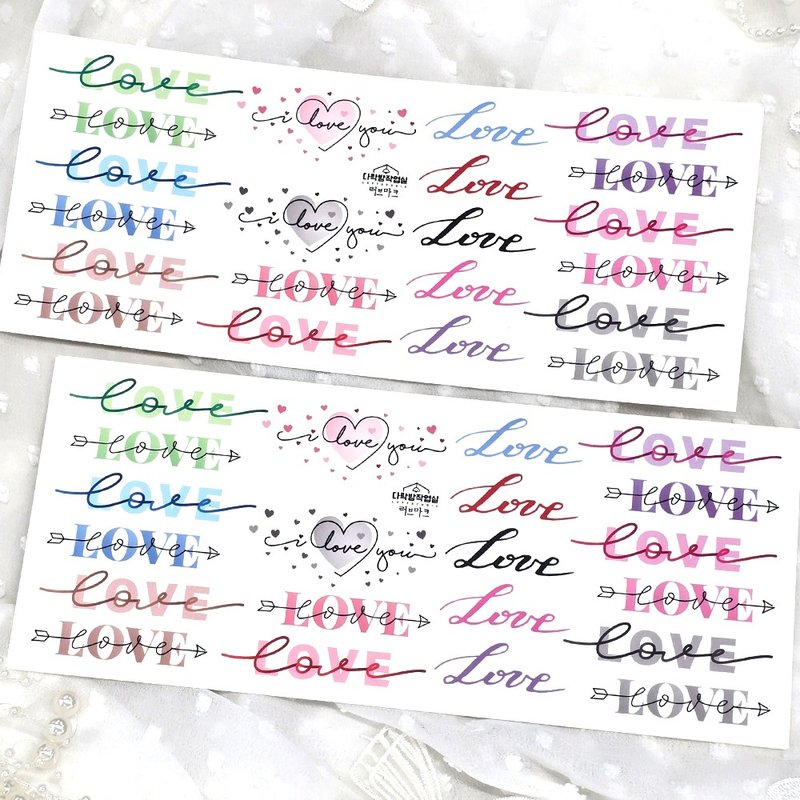 love LOVE
love LOVE
love LOVE
love LOVE
love LOVE
love LOVE
i love you
다락방작업실
러브마크
i love you
love LOVE
love LOVE
Love
Love
Love
Love
Love
love LOVE
love LOVE
love LOVE
love LOVE
love LOVE
love LOVE
love LOVE
love LOVE
love LOVE
love LOVE
love LOVE
love LOVE
i love you
다락방작업실
러브마크
i love you
love LOVE
love LOVE
Love
Love
Love
Love
Love
love LOVE
love LOVE
love LOVE
love LOVE
love LOVE
love LOVE